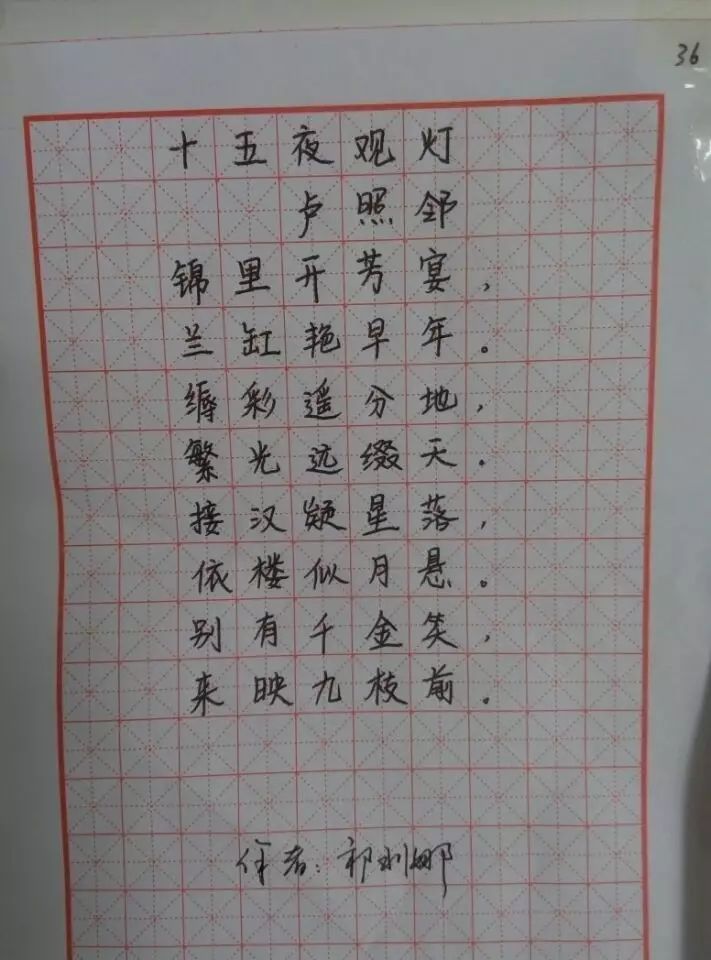 36
十五夜观灯
卢照邻
锦里开芳宴,
兰缸艳早年。
缛彩遥分地,
繁光远缀天.
接汉疑星落,
依楼似月悬。
别有千金笑,
来映九枝前.
作者:祁利娜